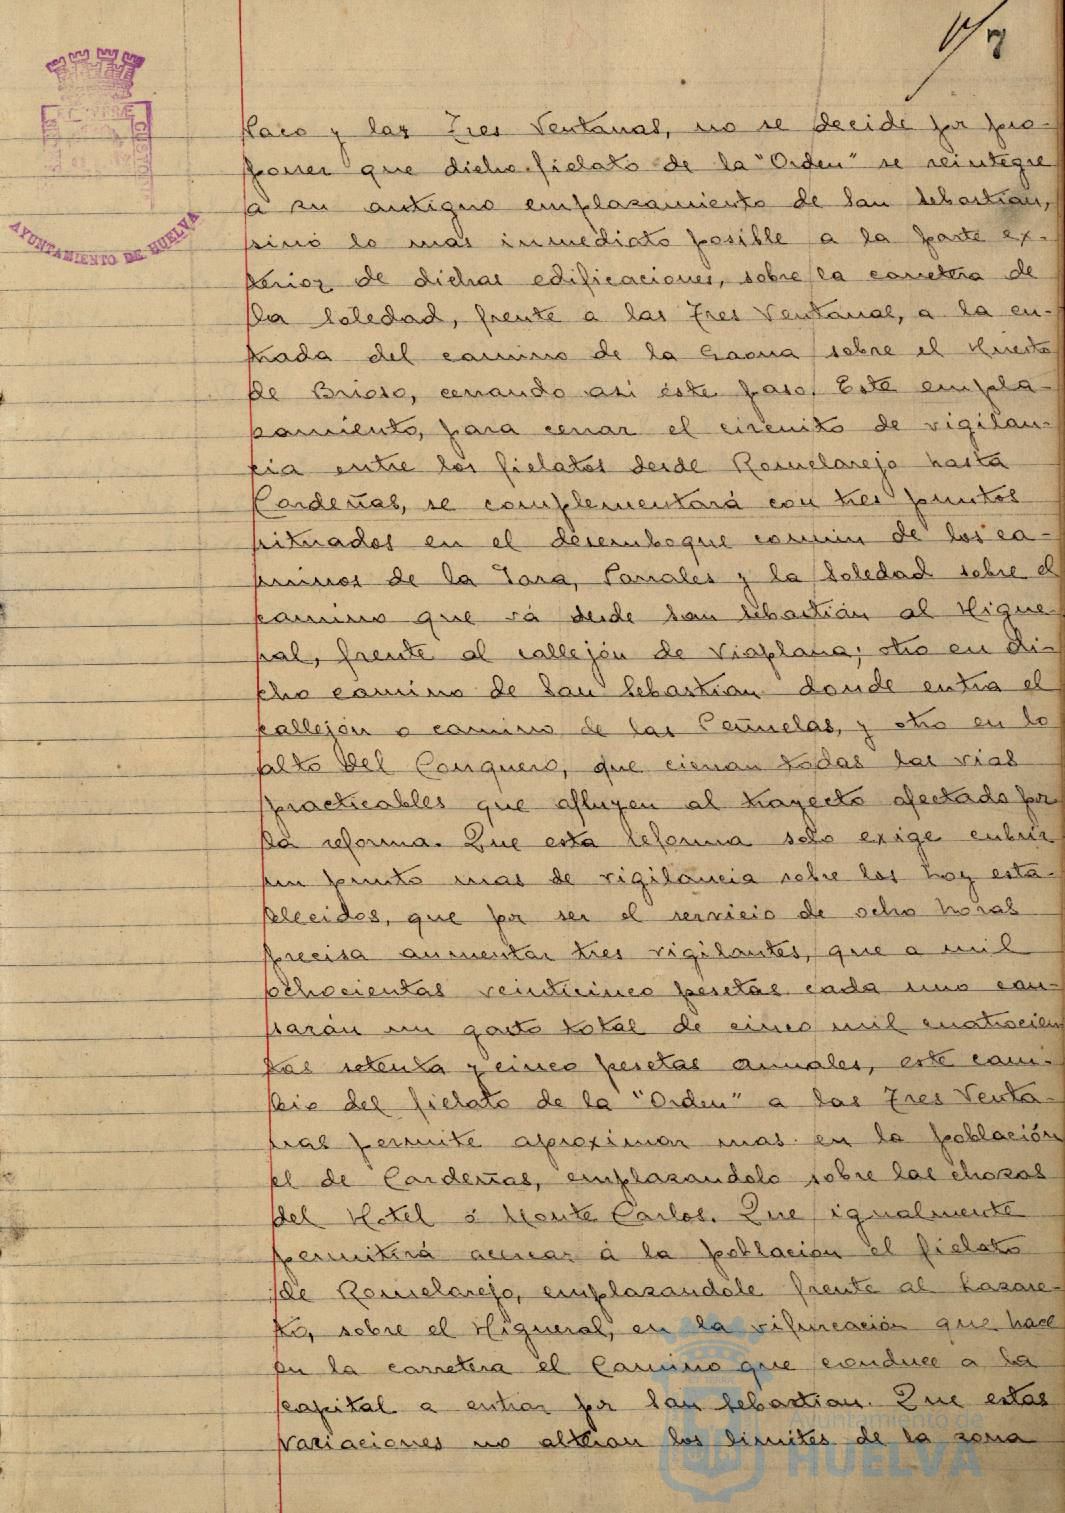 AYUNTAMIENTO DE HUELVA
Paco y las Tres Ventanas, no se decide por pro-
poner que dicho fielato de la "Orden" se reintegre
a su antiguo emplazamiento de San Sebastian,
sinó lo mas inmediato posible a la parte ex-
terior de dichas edificaciones, sobre la carretera de
la Soledad, frente a las Tres Ventanas, a la en-
trada del camino de la Gaona sobre el Huerto
de Brioso, cerrando asi éste paso. Este empla-
zamiento, para cerrar el circuito de vigilan-
cia entre los fielatos desde Romelarejo hasta
Cardeñas, se complementará con tres puntos
situados en el desemboque común de los ca-
minos de la Joya, Parrales y la Soledad sobre el
camino que vá desde San Sebastián al Higue-
ral, frente al callejón de Viaplana; otro en di-
cho camino de San Sebastian donde entra el
callejón o camino de las Peñuelas, y otro en lo
alto del Conquero, que cierran todas las vias
practicables que afluyen al trayecto afectado por
la reforma. Que esta reforma solo exige cubrir
un punto mas de vigilancia sobre los hoy esta-
blecidos, que por ser el servicio de ocho horas
precisa aumentar tres vigilantes, que a mil
ochocientas veinticinco pesetas cada uno cau-
sarán un gasto total de cinco mil cuatrocien
tas setenta y cinco pesetas anuales, este cam-
bio del fielato de la "Orden" a las Tres Venta-
nas permite aproximar mas en la población
el de Cardeñas, emplazandolo sobre las chozas
del Hotel ó Monte Carlos. Que igualmente
permitirá acercar á la poblacion el fielato
de Romelarejo, emplazandole frente al Lazare-
to, sobre el Higueral, en la vifurcación que hace
en la carretera el Camino que conduce a la
capital a entrar por San Sebastian. Que estas
variaciones no alteran los limites de la zona
Ayuntamiento de
HUELVA